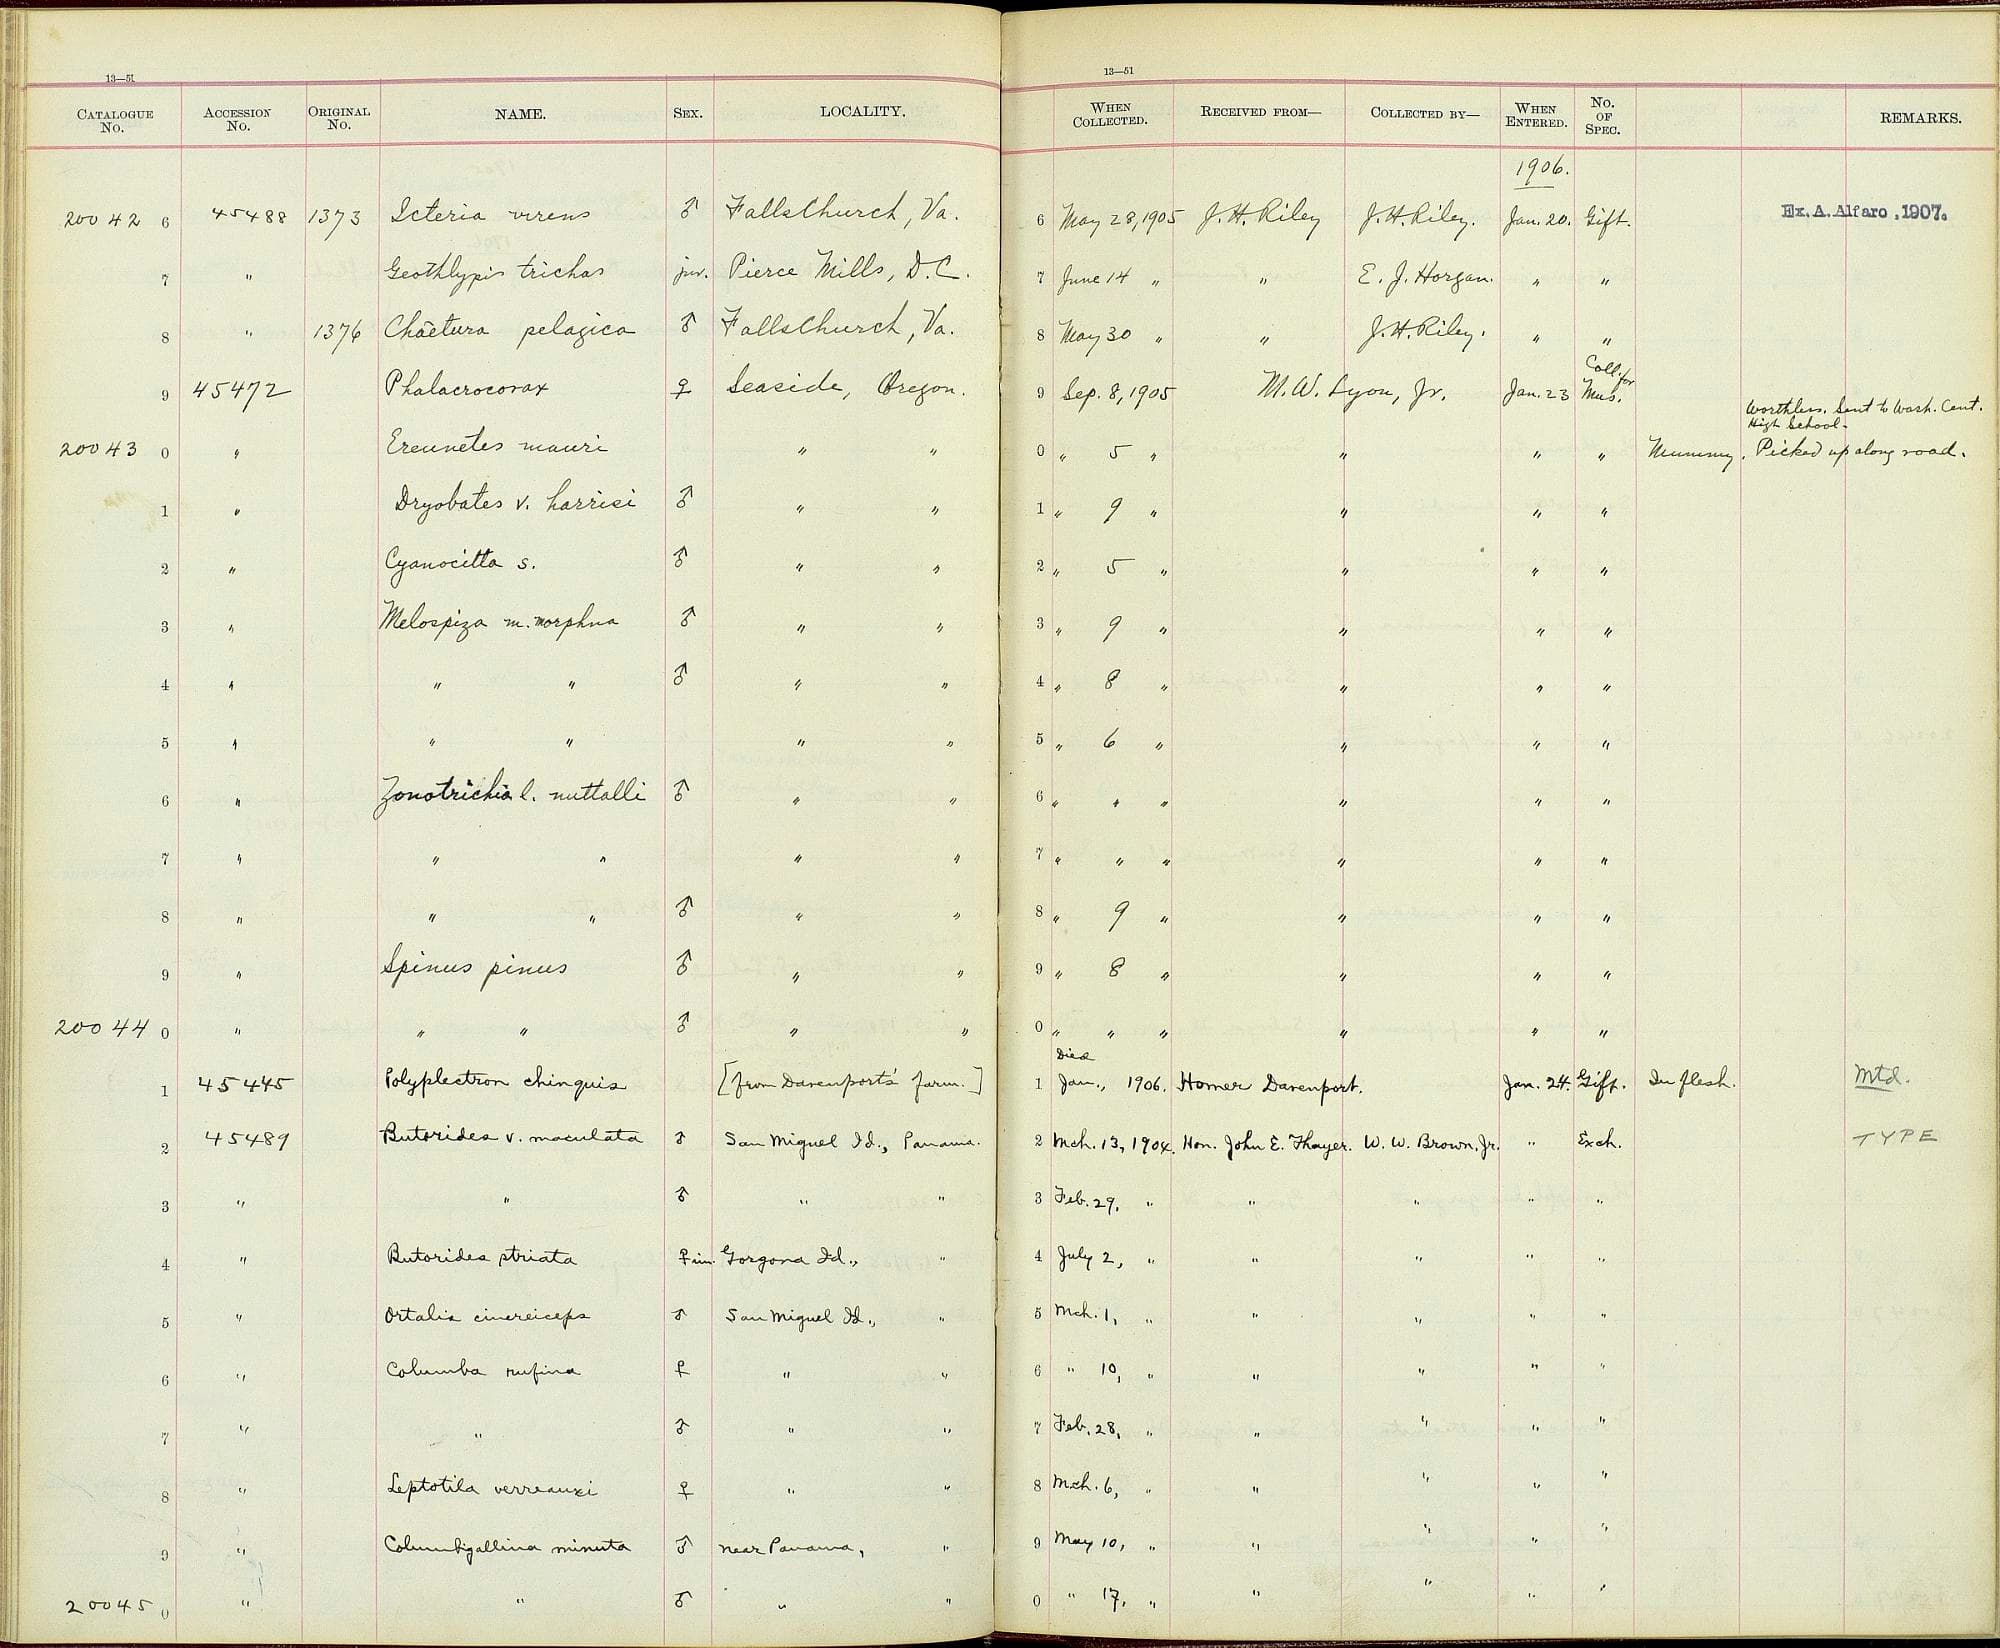 13—51
CATALOGUE No. ACCESSION No. ORIGINAL No. NAME. SEX. LOCALITY.
13—51
WHEN COLLECTED. RECEIVED FROM— COLLECTED BY— WHEN ENTERED. No. OF SPEC. REMARKS.
1906.
20042 6 45488 1373 Icteria virens ♂ Falls Church, Va. 6 May 28, 1905 J. H. Riley J. H. Riley. Jan. 20. Gift. Ex. A. Alfaro, 1907.
7 " Geothlypis trichas juv. Pierce Mills, D.C. 7 June 14 " " E. J. Horgan. " "
8 " 1376 Chaetura pelagica ♂ Falls Church, Va. 8 May 30 " " J. H. Riley. " "
9 45472 Phalacrocorax ♀ Seaside, Oregon. 9 Sep. 8, 1905 M. W. Lyon, Jr. Jan. 23 Coll. for Mus.
Worthless. Sent to Wash. Cent. High School.
20043 0 " Ereunetes mauri " " 0 " 5 " " " " Mummy. Picked up along road.
1 " Dryobates v. harrisi ♂ " " 1 " 9 " " " "
2 " Cyanocitta s. ♂ " " 2 " 5 " " " "
3 " Melospiza m. morphna ♂ " " 3 " 9 " " " "
4 " " " ♂ " " 4 " 8 " " " "
5 " " " " " 5 " 6 " " " "
6 " Zonotrichia l. nuttalli ♂ " " 6 " " " " " "
7 " " " " " 7 " " " " " "
8 " " " ♂ " " 8 " 9 " " " "
9 " Spinus pinus ♂ " " 9 " 8 " " " "
20044 0 " " " ♂ " " 0 " " " " " "
1 45445 Polyplectron chinquis [from Davenport's farm.] 1 Died Jan., 1906. Homer Davenport. Jan. 24. Gift. In flesh. Mtd.
2 45489 Butorides v. maculata ♂ San Miguel Id., Panama. 2 Mch. 13, 1904. Hon. John E. Thayer. W. W. Brown, Jr. " Exch. TYPE
3 " " ♂ " " 3 Feb. 29, " " " " "
4 " Butorides striata ♀ im. Gorgona Id., " 4 July 2, " " " " "
5 " Ortalis cinereiceps ♂ San Miguel Id., " 5 Mch. 1, " " " " "
6 " Columba rufina ♀ " " 6 " 10, " " " " "
7 " " ♂ " " 7 Feb. 28, " " " " "
8 " Leptotila verreauxi ♀ " " 8 Mch. 6, " " " " "
9 " Columbigallina minuta ♂ near Panama, " 9 May 10, " " " " "
20045 0 " " ♂ " " 0 " 17, " " " " "